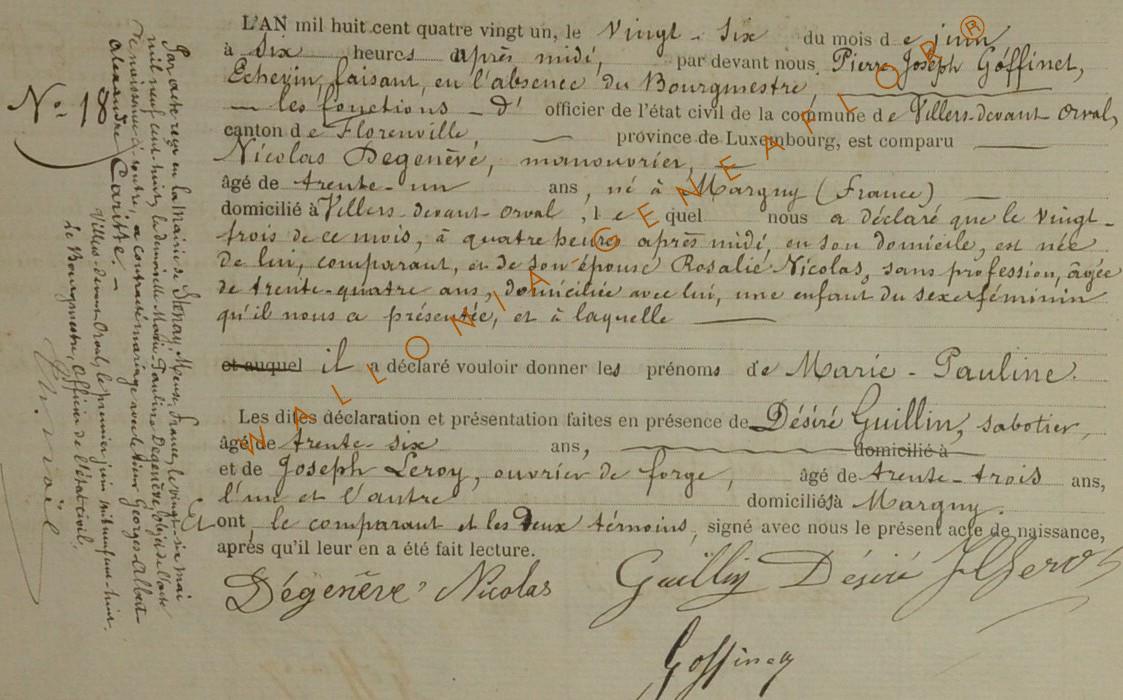 L'AN mil huit cent quatre vingt un, le Vingt-Six du mois de juin
à Six heures après midi, par devant nous Pierre Joseph Goffinet,
Echevin, faisant, en l'absence du Bourgmestre,
les fonctions d' officier de l'état civil de la commune de Villers-devant-Orval,
canton de Florenville, province de Luxembourg, est comparu
Nicolas Degenève, manouvrier,
âgé de trente-un ans, né à Margny (France)
domicilié à Villers-devant-Orval, lequel nous a déclaré que le vingt-
trois de ce mois, à quatre heures après midi, en son domicile, est née
de lui, comparant, et de son épouse Rosalie Nicolas, sans profession, âgée
de trente-quatre ans, domiciliée avec lui, une enfant du sexe féminin
qu'il nous a présentée, et à laquelle
et auquel il a déclaré vouloir donner les prénoms de Marie-Pauline.
Les dites déclaration et présentation faites en présence de Désiré Guillin, sabotier,
âgé de trente-six ans, domicilié à
et de Joseph Leroy, ouvrier de forge, âgé de trente-trois ans,
l'un et l'autre domicilié à Margny.
Et ont le comparant et les deux témoins, signé avec nous le présent acte de naissance,
après qu'il leur en a été fait lecture.
Dégenève Nicolas Guillin Désiré
Goffinet
No. 18
Par acte reçu en la Mairie de Stenay, Meuse, France, le vingt-six mai
mil neuf cent huit, la demoiselle Marie Pauline Degenève, objet de l'acte
de naissance ci-contre, a contracté mariage avec le sieur Georges Albert
Alexandre Caritte.
Villers-devant-Orval, le premier juin mil neuf cent huit.
Le Bourgmestre, Officier de l'état civil,
WALLONIA-GENEALOR®